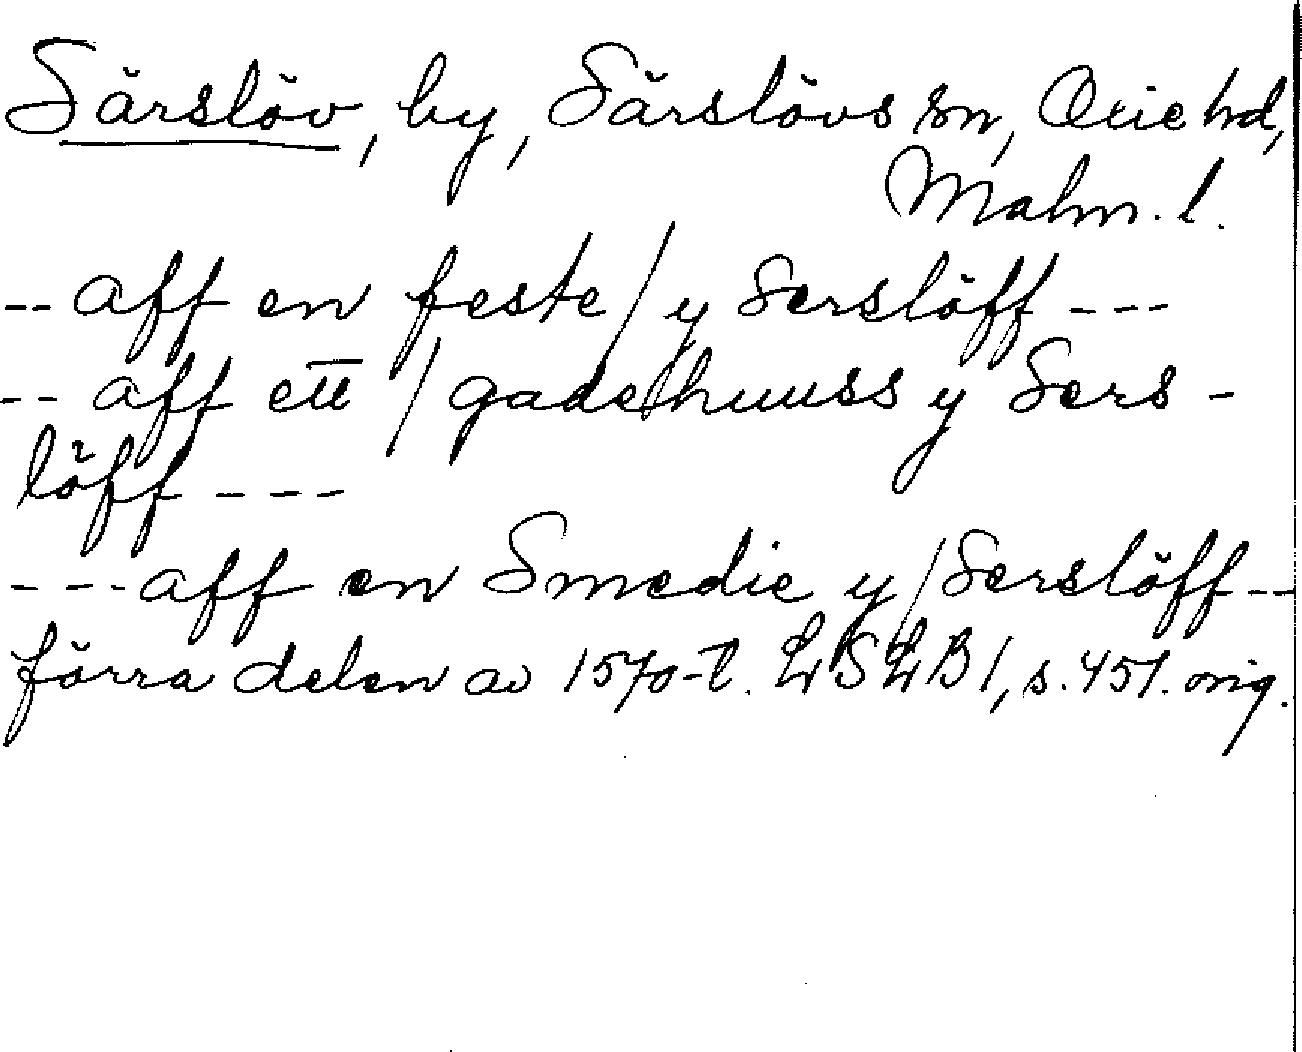 Särslöv, by, Särslövs sn, Oxie hd,
Malm. l.
-- aff en feste / y Serslöff ---
-- aff ett / gadehuuss y Sers-
löff ----
--- aff en Smedie y / Serslöff --
förra delen av 1570-t. LSLB 1, s. 451. orig.